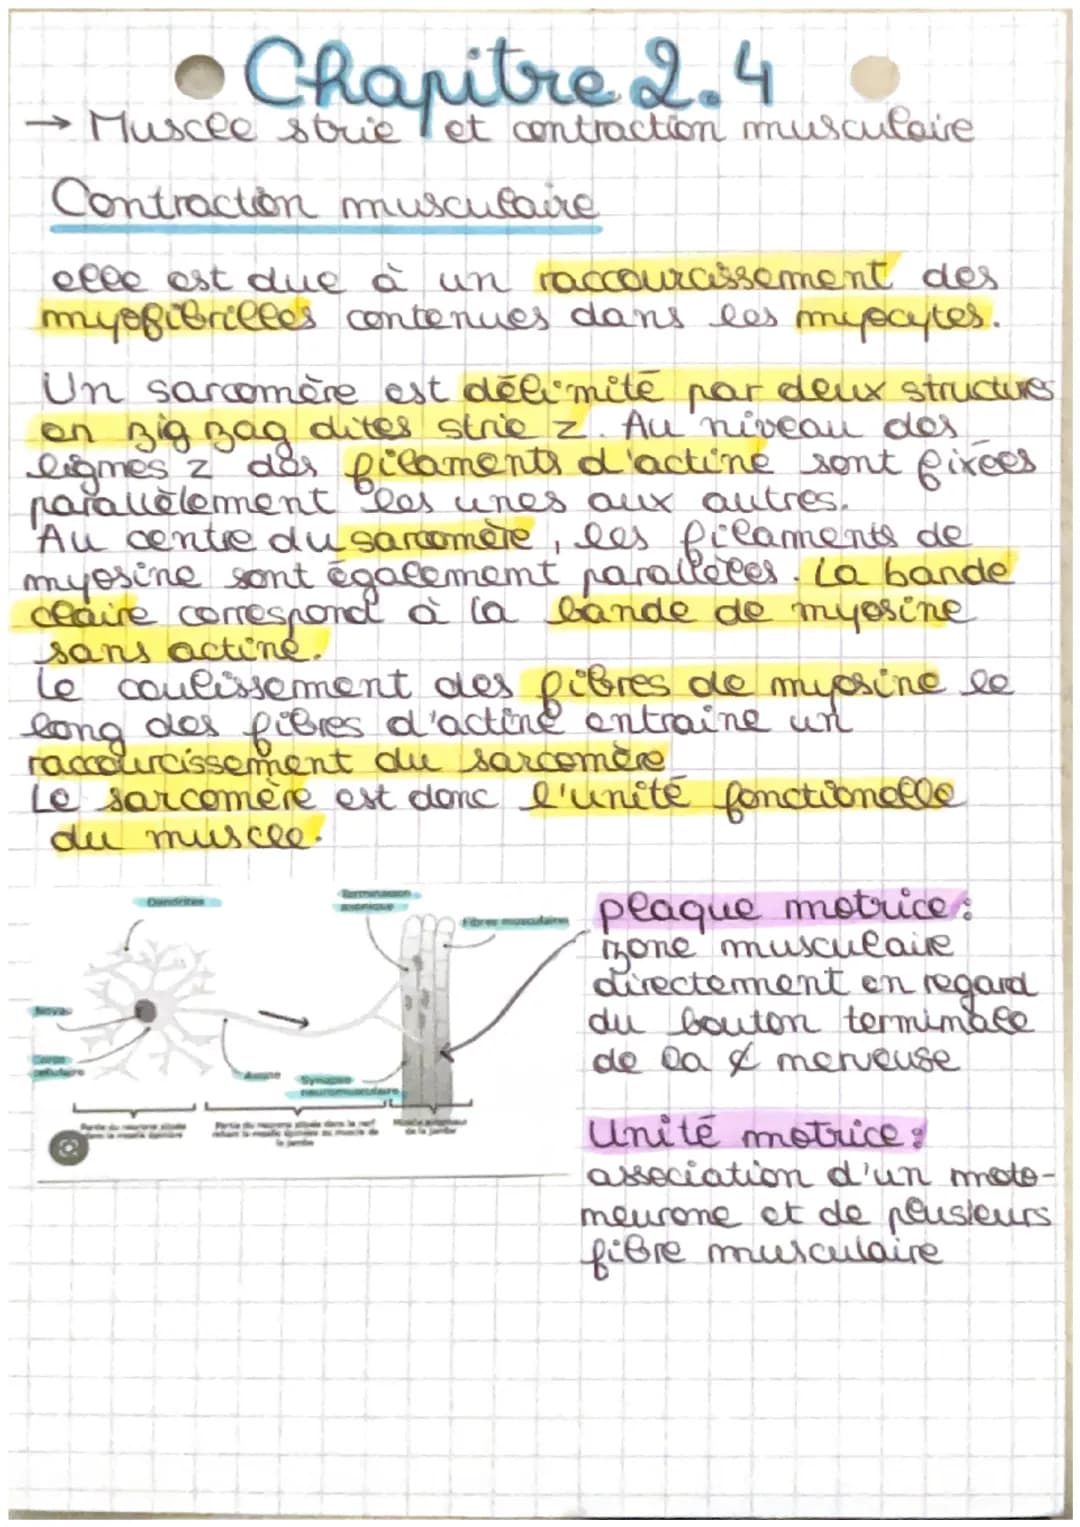 Chapitre 2.4
→ Muscle strie et contraction musculaire
Contraction musculaire
elle est due à un raccourcissement des
myofibrilles contenues dans les myocytes.
Un sarcomère est délimité par deux structures
en zig zag dites strie z. Au niveau des
lignes z des filaments d'actine sont fixées
parallèlement les unes aux autres.
Au centre du sarcomère, les filaments de
myosine sont également parallèles. La bande
claire correspond à la bande de myosine
sans actine.
Le coulissement des fibres de myosine le
long des fibres d'actine entraine un
raccourcissement du sarcomère
Le sarcomère est donc l'unité fonctionelle
du muscle.
Dendrites
Terminaison
axonique
Fibres musculaires
Noyau
Corps
cellulaire
Axone
Synapse
neuromusculaire
Partie du neurone située
dans la moelle épinière
Partie du neurone située dans le nerf
reliant la moelle épinière au muscle de
la jambe
Muscle
de la jambe
plaque motrice:
zone musculaire
directement en regard
du bouton terminale
de la ¢ nerveuse
Unité motrice:
association d'un moto-
neurone et de plusieurs
fibre musculaire